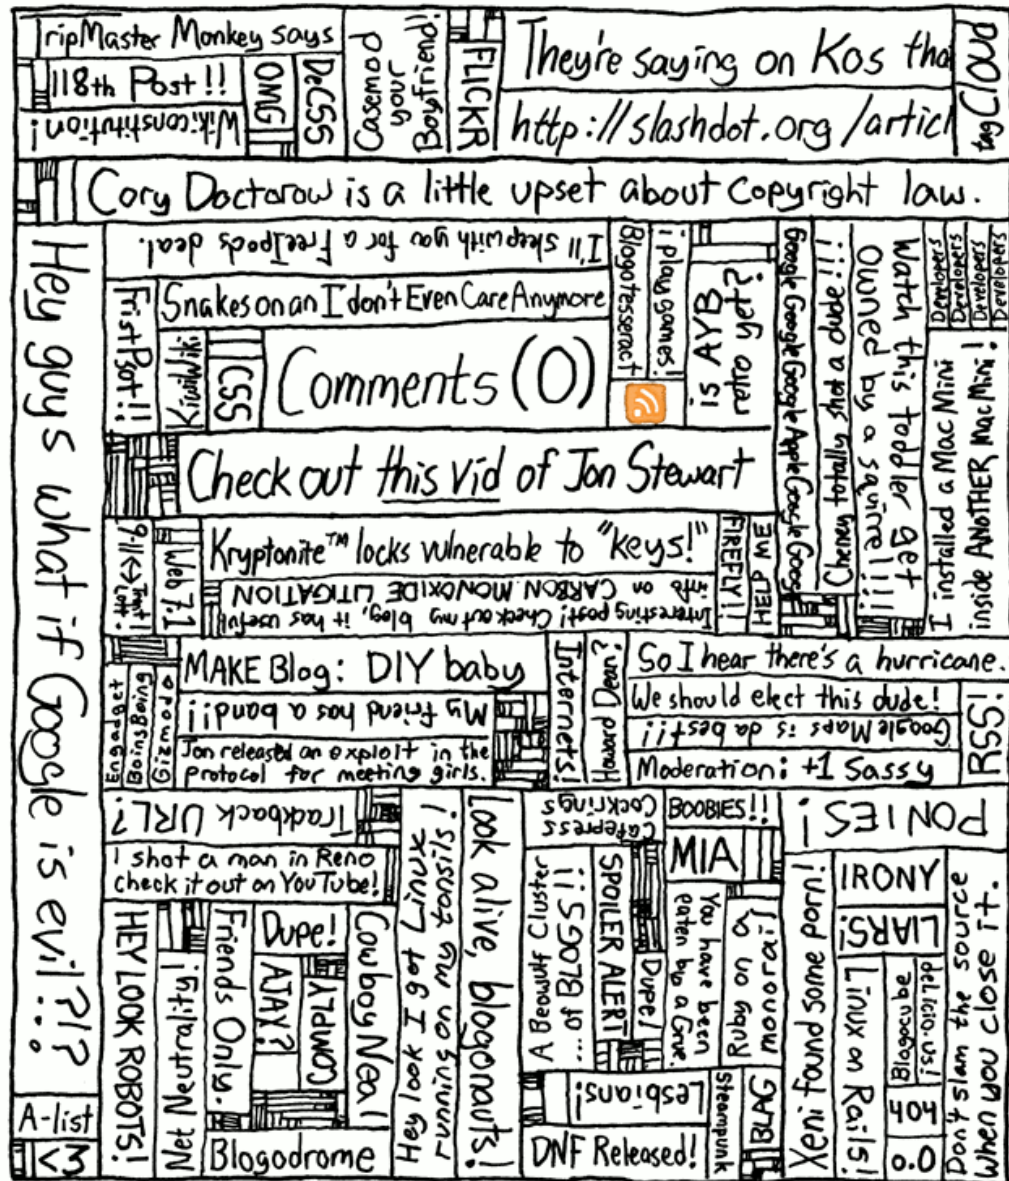 TripMaster Monkey says
118th Post!!
Wikiconstitution!
OMG
DeCSS
Casemod
your
Boyfriend!
FLICKR
They're saying on Kos tha
http://slashdot.org/articl
tag Cloud
Cory Doctorow is a little upset about copyright law.
Hey guys what if Google is evil?!?
I'll sleep with you for a FreeIpods deal.
Snakes on an I don't Even Care Anymore
FristPsot!!
KiwiWiki
CSS
Comments (0)
Blogotesseract
i play games!
is AYB
retro yet?
Google Google Google Google Apple Google Google
Cheney totally shot a dude!!!
Watch this toddler get
Owned by a squirrel!!!
Developers
Developers
Developers
Developers
I installed a Mac Mini
inside ANOTHER Mac Mini!
Check out this vid of Jon Stewart
9-11<->Trent
Lott!
Web 7.1
Kryptonite™ locks vulnerable to "keys!"
Interesting post! Check out my blog, it has useful
info on CARBON MONOXIDE LITIGATION
FIREFLY!!
HELP ME
Engadget
BoingBoing
Gizmodo
MAKE Blog: DIY baby
My friend has a band!!
Jon released an exploit in the
protocol for meeting girls.
Internets!
Howard Dean?
So I hear there's a hurricane.
We should elect this dude!
Google Maps is da best!!!
Moderation: +1 Sassy
RSS!
Trackback URL?
I shot a man in Reno
check it out on YouTube!
HEY LOOK ROBOTS!
Net Neutrality!
Friends Only.
Dupe!
AJAX?
COMPLY
CowboyNeal
Blogodrome
Hey look I got Linux
running on my tonsils!
Look alive, blogonauts!
Cafepress
Cockrings
A Beowulf Cluster
... of BLOGS!!
SPOILER ALERT!
Dupe!
BOOBIES!!
MIA
You have been
eaten by a Grue.
Ruby on a
monorail
Lesbians!
DNF Released!
Steampunk
BLAG
PONIES!
Xeni found some porn!
IRONY
LIARS!
Linux on Rails!
Blogocube
del.icio.us!
404
o.0
Don't slam the source
When you close it.
A-list
<3